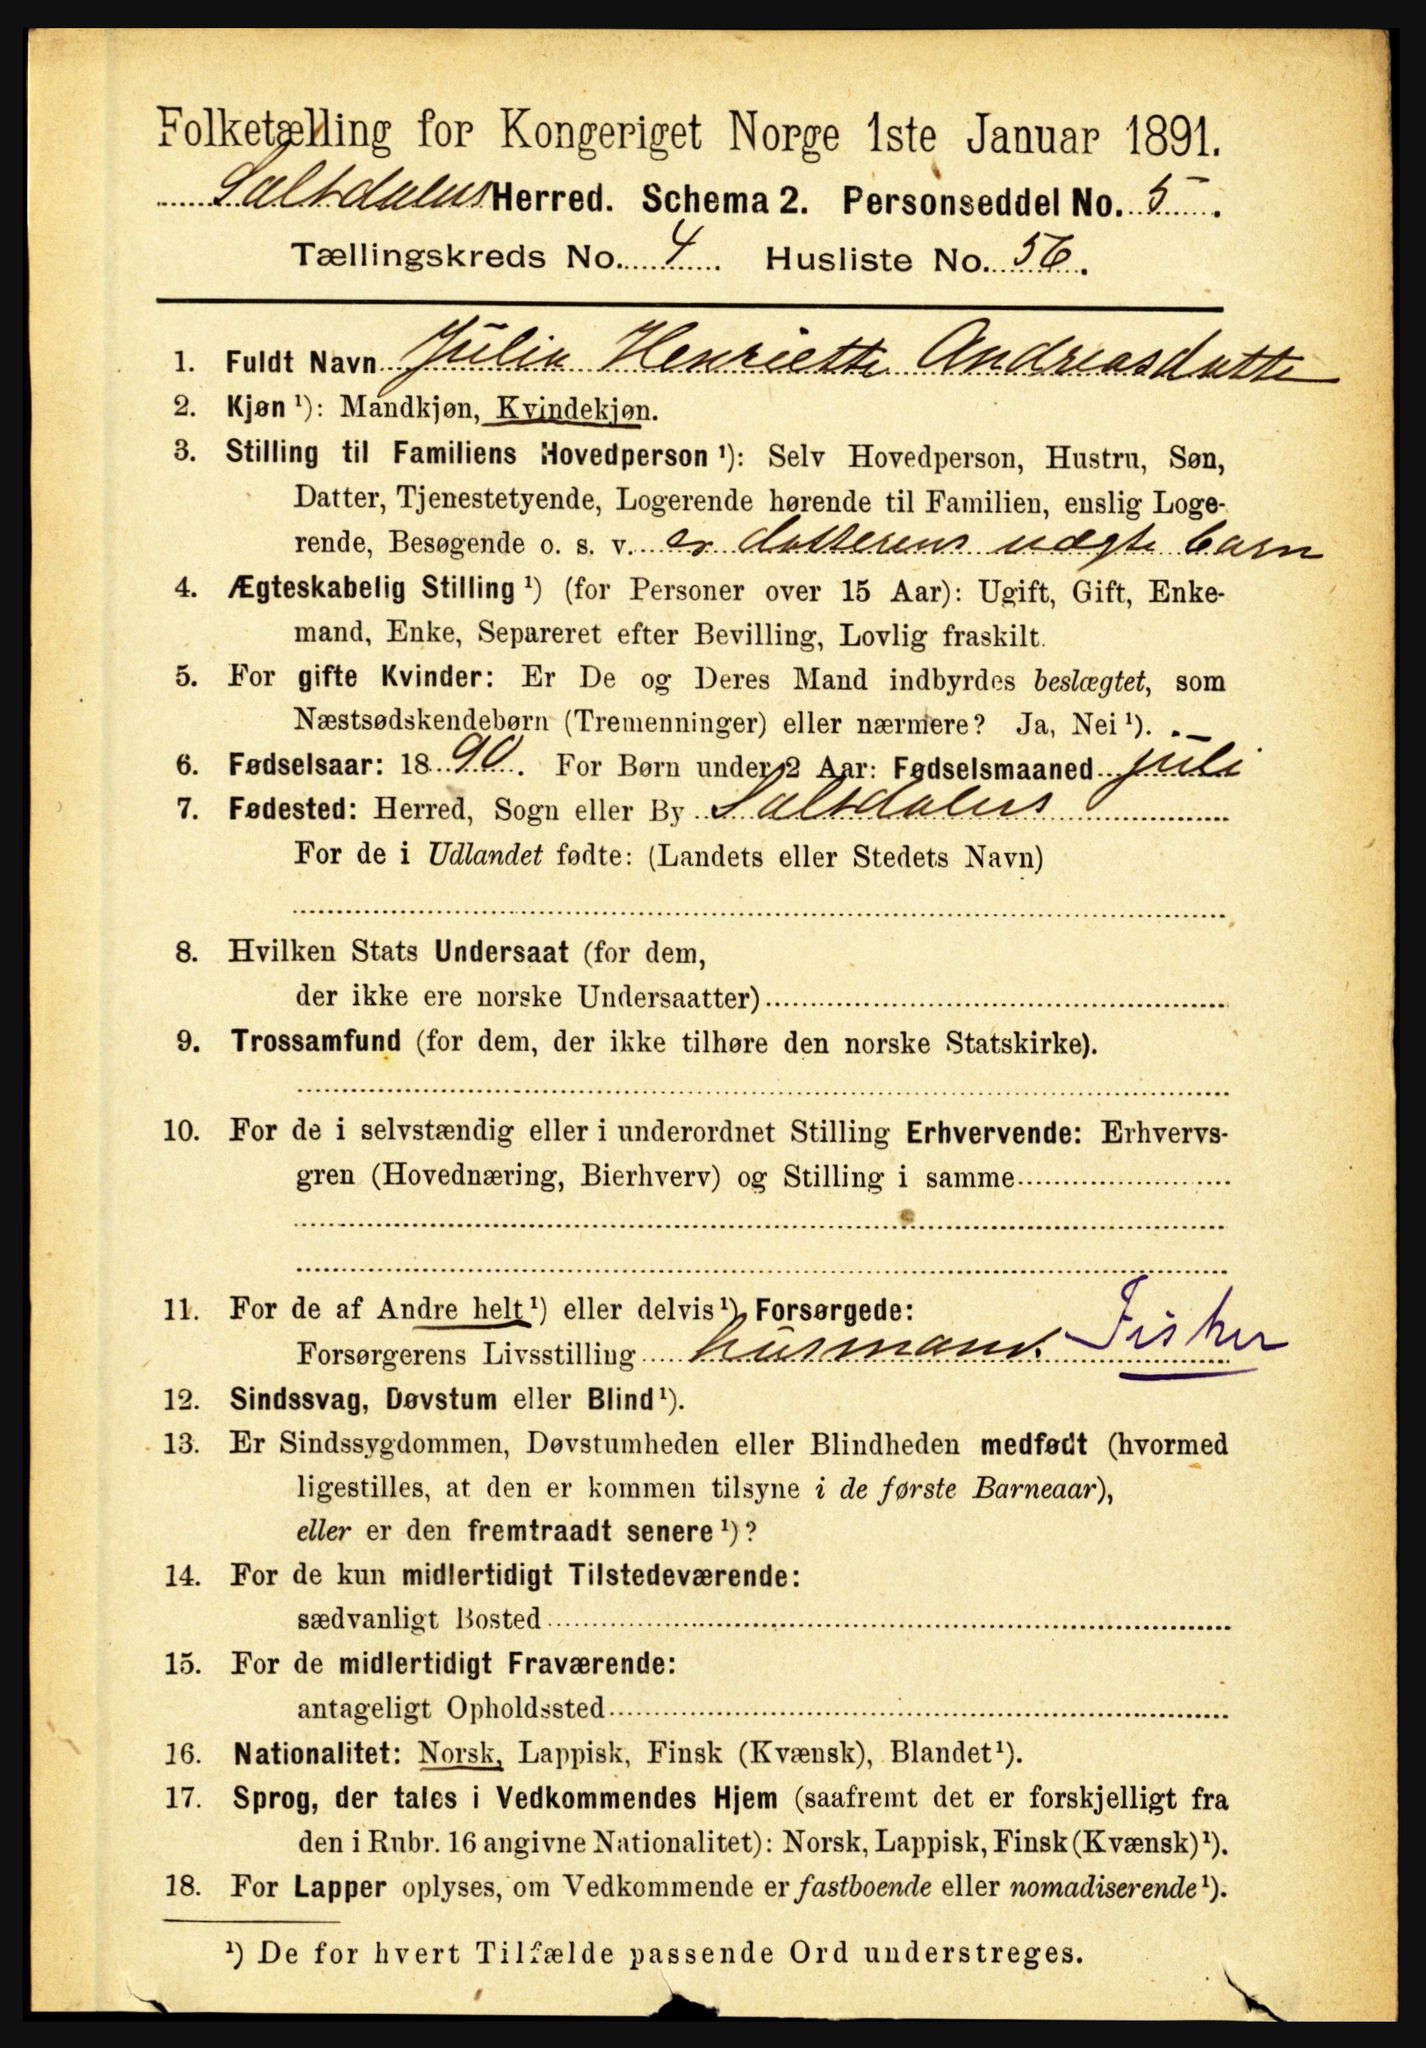 Folketælling for Kongeriget Norge 1ste Januar 1891.
Saltdalens Herred. Schema 2. Personseddel No. 5.
Tællingskreds No. 4. Husliste No. 56.
1. Fuldt Navn Julia Henriette Andreasdatte
2. Kjøn ¹): Mandkjøn, Kvindekjøn.
3. Stilling til Familiens Hovedperson ¹): Selv Hovedperson, Hustru, Søn,
Datter, Tjenestetyende, Logerende hørende til Familien, enslig Loge-
rende, Besøgende o. s. v. er datterens uægte barn
4. Ægteskabelig Stilling ¹) (for Personer over 15 Aar): Ugift, Gift, Enke-
mand, Enke, Separeret efter Bevilling, Lovlig fraskilt.
5. For gifte Kvinder: Er De og Deres Mand indbyrdes beslægtet, som
Næstsødskendebørn (Tremenninger) eller nærmere? Ja, Nei ¹).
6. Fødselsaar: 1890. For Børn under 2 Aar: Fødselsmaaned juli
7. Fødested: Herred, Sogn eller By Saltdalens
For de i Udlandet fødte: (Landets eller Stedets Navn)
8. Hvilken Stats Undersaat (for dem,
der ikke ere norske Undersaatter)
9. Trossamfund (for dem, der ikke tilhøre den norske Statskirke).
10. For de i selvstændig eller i underordnet Stilling Erhvervende: Erhvervs-
gren (Hovednæring, Bierhverv) og Stilling i samme
11. For de af Andre helt ¹) eller delvis ¹) Forsørgede:
Forsørgerens Livsstilling husmand. Fisker
12. Sindssvag, Døvstum eller Blind ¹).
13. Er Sindssygdommen, Døvstumheden eller Blindheden medfødt (hvormed
ligestilles, at den er kommen tilsyne i de første Barneaar),
eller er den fremtraadt senere ¹)?
14. For de kun midlertidigt Tilstedeværende:
sædvanligt Bosted
15. For de midlertidigt Fraværende:
antageligt Opholdssted
16. Nationalitet: Norsk, Lappisk, Finsk (Kvænsk), Blandet ¹).
17. Sprog, der tales i Vedkommendes Hjem (saafremt det er forskjelligt fra
den i Rubr. 16 angivne Nationalitet): Norsk, Lappisk, Finsk (Kvænsk) ¹).
18. For Lapper oplyses, om Vedkommende er fastboende eller nomadiserende ¹).
¹) De for hvert Tilfælde passende Ord understreges.